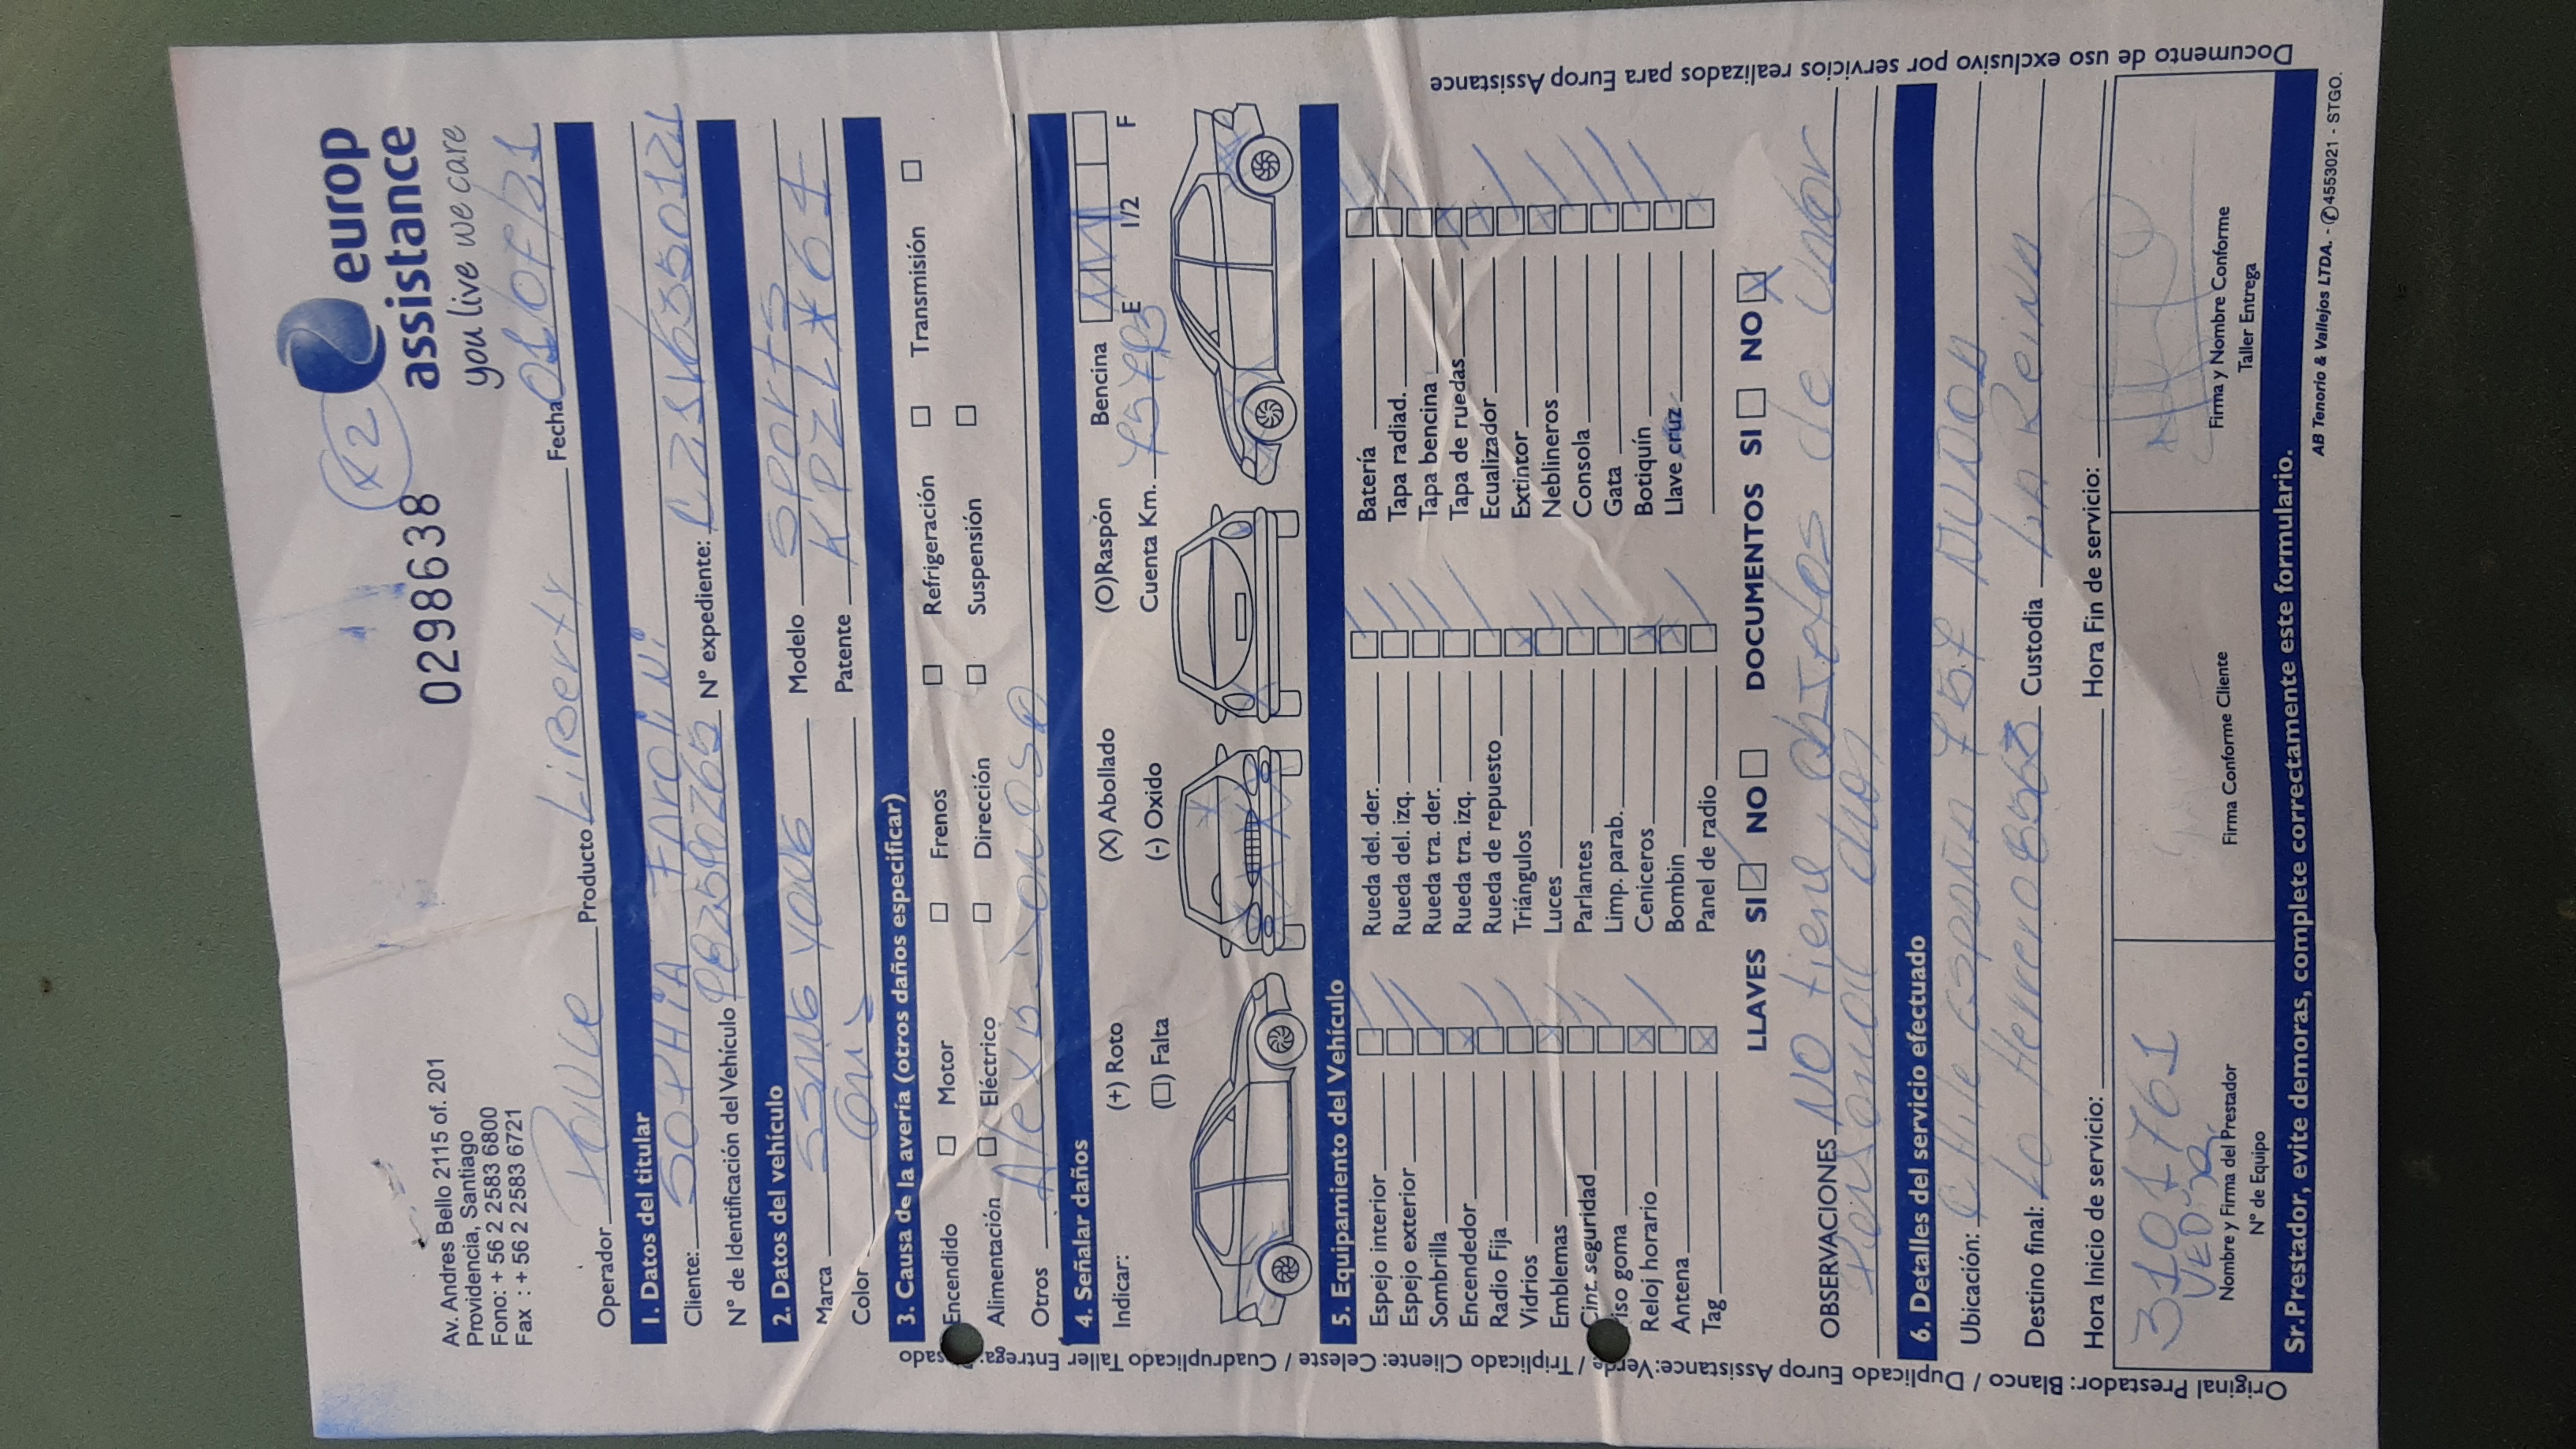 Av. Andres Bello 2115 of. 201
Providencia, Santiago
Fono: + 56 2 2583 6800
Fax : + 56 2 2583 6721
02986638
x2
europ
assistance
you live we care
Operador Ponce Producto Liberty Fecha
1. Datos del titular
Cliente: SOPHIA FAroliNi
N° de Identificación del Vehículo N° expediente:
2. Datos del vehículo
Marca SSANG YONG Modelo SPORTS
Color Patente KPZL*61
3. Causa de la avería (otros daños especificar)
Encendido Motor Frenos Refrigeración Transmisión
Alimentación Eléctrico Dirección Suspensión
Otros Donoso
4. Señalar daños
Indicar: (+) Roto (X) Abollado (O)Raspón Bencina E 1/2 F
(□) Falta (-) Oxido Cuenta Km.
5. Equipamiento del Vehículo
Espejo interior Rueda del. der. Batería
Espejo exterior Rueda del. izq. Tapa radiad.
Sombrilla Rueda tra. der. Tapa bencina
Encendedor Rueda tra. izq. Tapa de ruedas
Radio Fija Rueda de repuesto Ecualizador
Vidrios Triángulos Extintor
Emblemas Luces Neblineros
Cint. seguridad Parlantes Consola
iso goma Limp. parab. Gata
Reloj horario Ceniceros Botiquín
Antena Bombin Llave cruz
Tag Panel de radio
LLAVES SI NO DOCUMENTOS SI NO
OBSERVACIONES NO tiene objetos de valor
Personal
6. Detalles del servicio efectuado
Ubicación: CHile España 757 ÑUÑOA
Destino final: Lo Herrera Custodia LA Reina
Hora Inicio de servicio: Hora Fin de servicio:
Nombre y Firma del Prestador
N° de Equipo
Firma Conforme Cliente
Firma y Nombre Conforme
Taller Entrega
Sr.Prestador, evite demoras, complete correctamente este formulario.
AB Tenorio & Vallejos LTDA. - ✆4553021 - STGO.
Original Prestador: Blanco / Duplicado Europ Assistance:Verde / Triplicado Cliente: Celeste / Cuadruplicado Taller Entrega: sado
Documento de uso exclusivo por servicios realizados para Europ Assistance